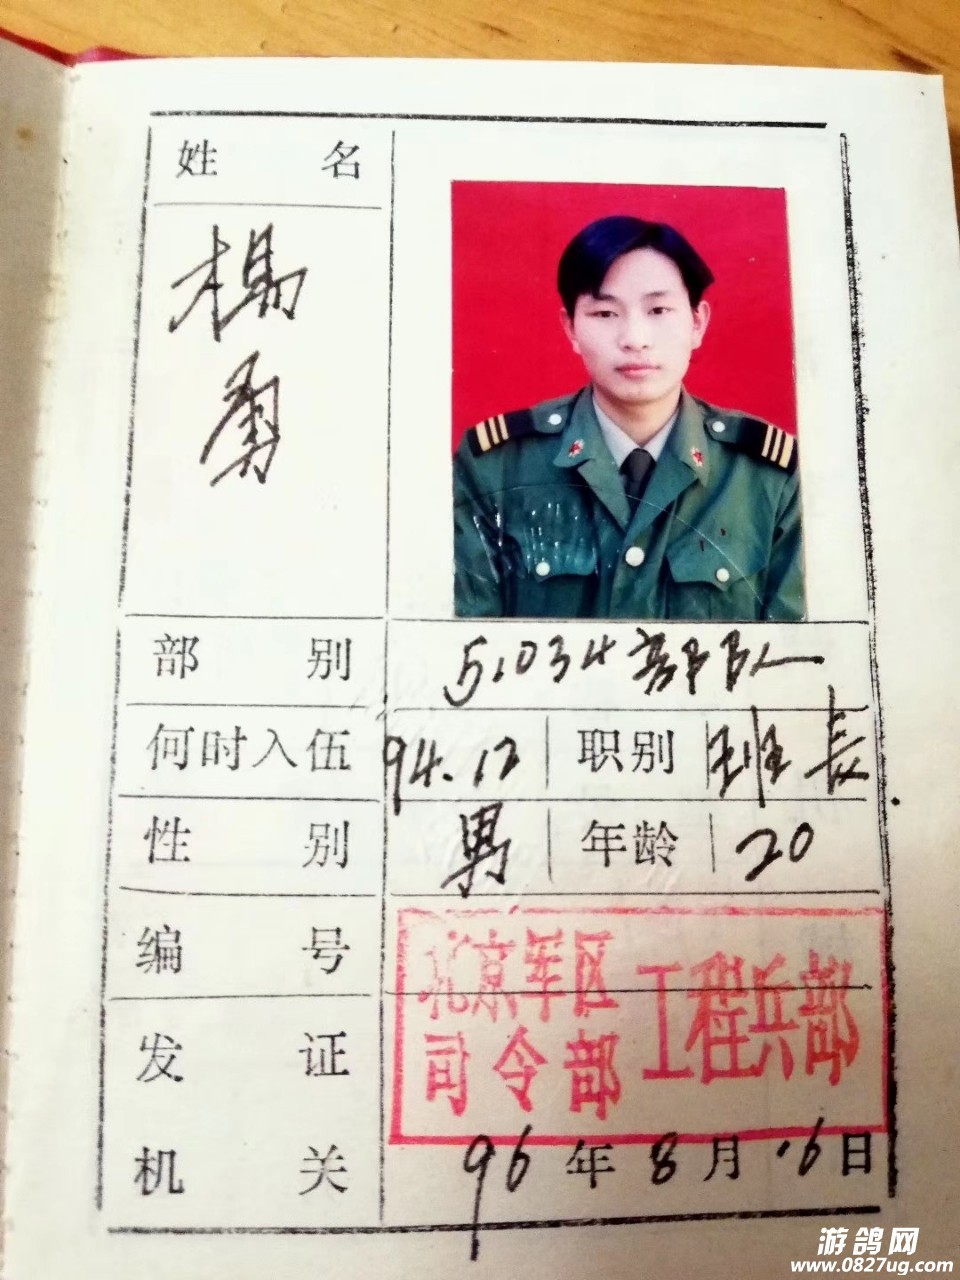 姓名
楊勇
部别 51034部队
何时入伍 94.12 职别 班长
性别 男 年龄 20
编号
北京军区
司令部 工程兵部
发证
机关 96年8月16日
游鸽网
www.0827ug.com